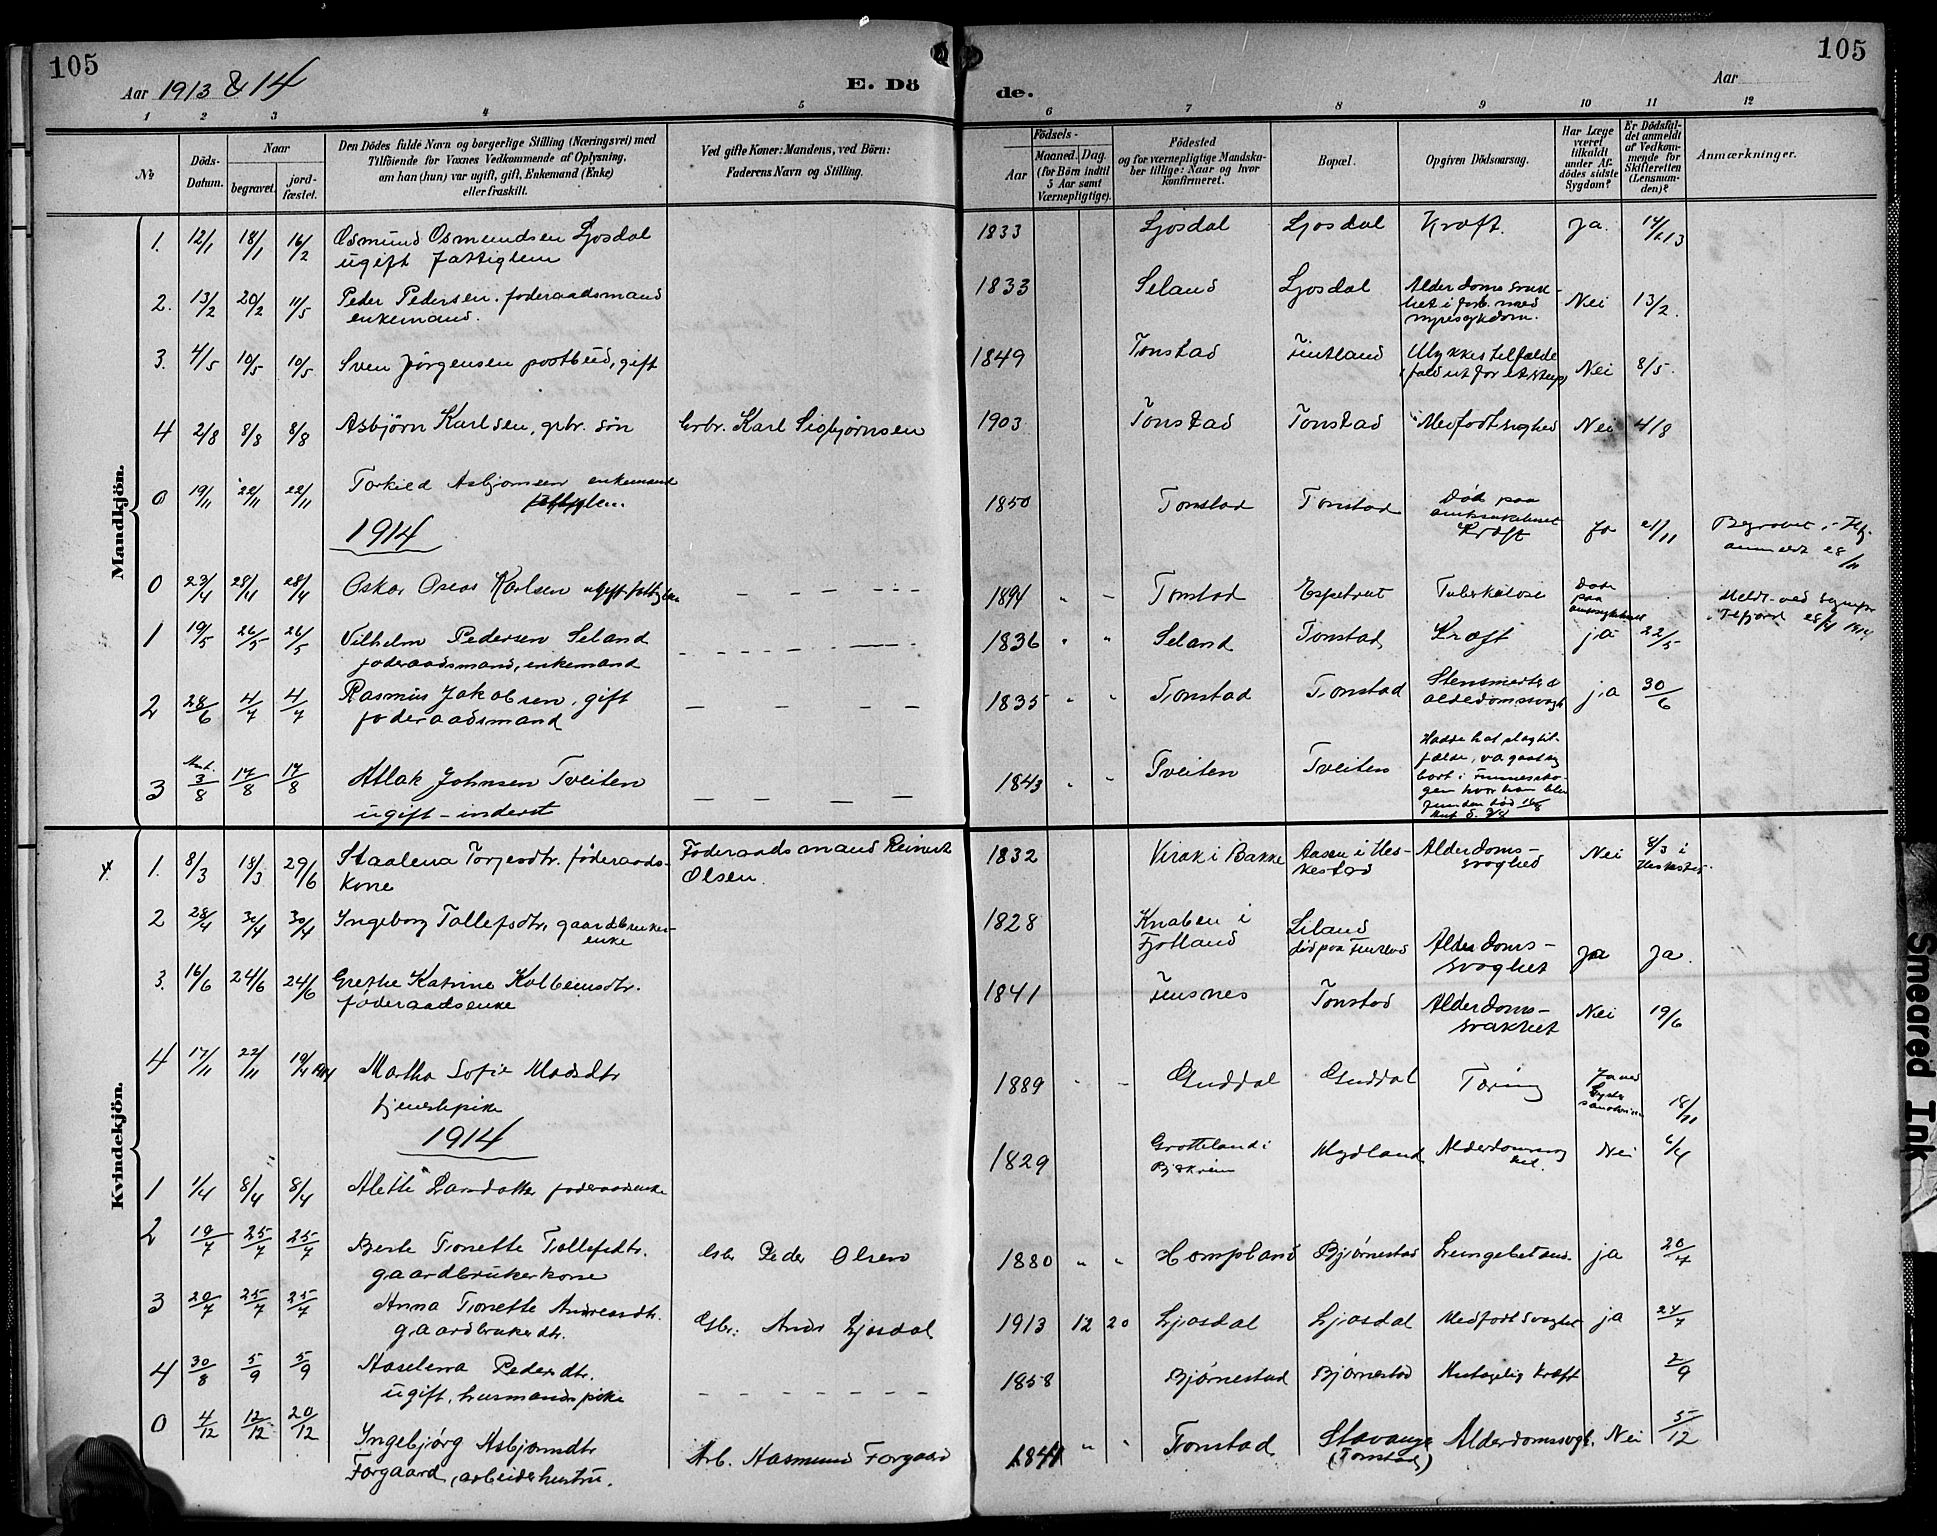 105
Aar 1913 & 14
E. Dö
de.
Aar
105
1 2 3 4 5 6 7 8 9 10 11 12
No
Döds-
Datum.
Naar
begravet.
jord-
fæstet.
Den Dödes fulde Navn og borgerlige Stilling (Næringsvei) med
Tilföiende for Voxnes Vedkommende af Oplysning,
om han (hun) var ugift, gift, Enkemand (Enke)
eller fraskilt.
Ved gifte Koner: Mandens, ved Börn:
Faderens Navn og Stilling.
Födsels-
Aar
Maaned. Dag.
(for Börn indtil
5 Aar samt
Værnepligtige).
Födested
og for værnepligtige Mandska-
ber tillige: Naar og hvor
konfirmeret.
Bopæl.
Opgiven Dödsaarsag.
Har Læge
været
tilkaldt
under Af-
dödes sidste
Sygdom?
Er Dödsfal-
det anmeldt
af Vedkom-
mende for
Skifteretten
(Lensman-
den)?
Anmærkninger.
Mandkjön.
1. 12/1 18/1 16/2 Osmund Osmundsen Ljosdal
ugift fattiglem
1833 Ljosdal Ljosdal Kræft. Ja. 14/1 13
2. 13/2 20/2 11/5 Peder Pedersen. foderaadsmand
enkemand.
1833 Seland Ljosdal Alderdomssvak-
het i forb. med
nyresykdom.
Nei 13/2.
3. 4/5 10/5 10/5 Sven Jörgensen postbud, gift
1849 Tonstad Fintland Ulykkestilfælde
(fald ut for et stup)
Nei 8/5.
4 2/8 8/8 8/8 Asbjörn Karlsen, grbr. sön Grbr. Karl Sigbjörnsen
1903 Tonstad Tonstad Medfödt svaghed Nei 4/8
0 19/11 22/11 22/11 Torkild Asbjørnsen enkemand
1850 Tonstad Tonstad Död paa
Kræft
Ja 21/11 Begravet i
anmeldt 28/11
1914
0 23/4 28/4 28/4 Oskar Oseas Karlsen ugift
1894 Tonstad Espetveit Tuberkulose
Døde
paa
1 19/5 26/5 26/5 Vilhelm Pedersen Seland
foderaadsmand, enkemand
1836 Seland Tonstad Kræft ja 22/5
2 28/6 4/7 4/7 Rasmus Jakobsen, gift
foderaadsmand
1835 Tonstad Tonstad ja 30/6
3 3/8 17/8 17/8 Atlak Johnsen Tveiten
ugift - inderst
1843 Tveiten Tveiten Hadde hat slagtil-
fælde, va gaat sig
bort i
gen hvor han blev
funden død
Kvindekjön.
1. 8/3 18/3 29/6 Staalena Torjesdtr. föderaads-
kone
Föderaadsmand Reinert
Olsen.
1832 Virak i Bakke Aasen i Hes-
kestad
Alderdoms-
svaghed
Nei 8/3 i
Heskestad.
2 28/4 30/4 30/4 Ingeborg Tallefsdtr. gaardbruker-
enke
1828 Knaben i
Fjotland
Liland
Alderdoms-
svaghet
Ja Ja.
3. 16/6 24/6 24/6 Grethe Katrine Kolbeinsdtr.
föderaadsenke
1841 Finsnes Tonstad Alderdoms-
svakhet
Nei 19/6
4 17/11 22/11 19/4 1914 Martha Sofie Madsdtr
tjenestepike
1889 Guddal Guddal Tæring
18/11
1914
1 1/4 8/4 8/4 Alette Larsdatter foderaadsenke
1829 Grøtteland i
Bjerkreim
Mydland Nei 6/4
2 19/7 25/7 25/7 Berte Tonette Tollefsdtr.
gaardbrukerkone
Gbr Peder Olsen
1880 Hompland Bjørnestad ja 20/7
3 20/7 25/7 25/7 Anna Tonette Andreasdtr.
gaardbrukerdtr.
Gbr: Andr Ljosdal
1913 12 20 Ljosdal Ljosdal Medfødt Svaghet ja 24/7
4 30/8 5/9 5/9 Aaselena Pedersdtr.
ugift, husmandspike
1858 Bjørnestad Bjørnestad Antagelig kræft 2/9
0 4/12 12/12 20/12 Ingebjørg Asbjørnsdtr
Forgaard, arbeiderhustru.
Arb. Aasmund Forgaard
1841 Tonstad Stavanger
(Tonstad)
Alderdomssvagh. Nei 5/12
Smeared Ink